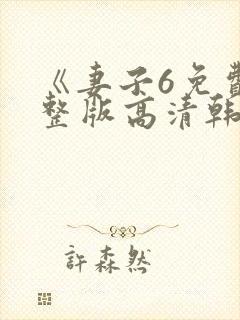 《妻子6免費
整版高清韩
許森然